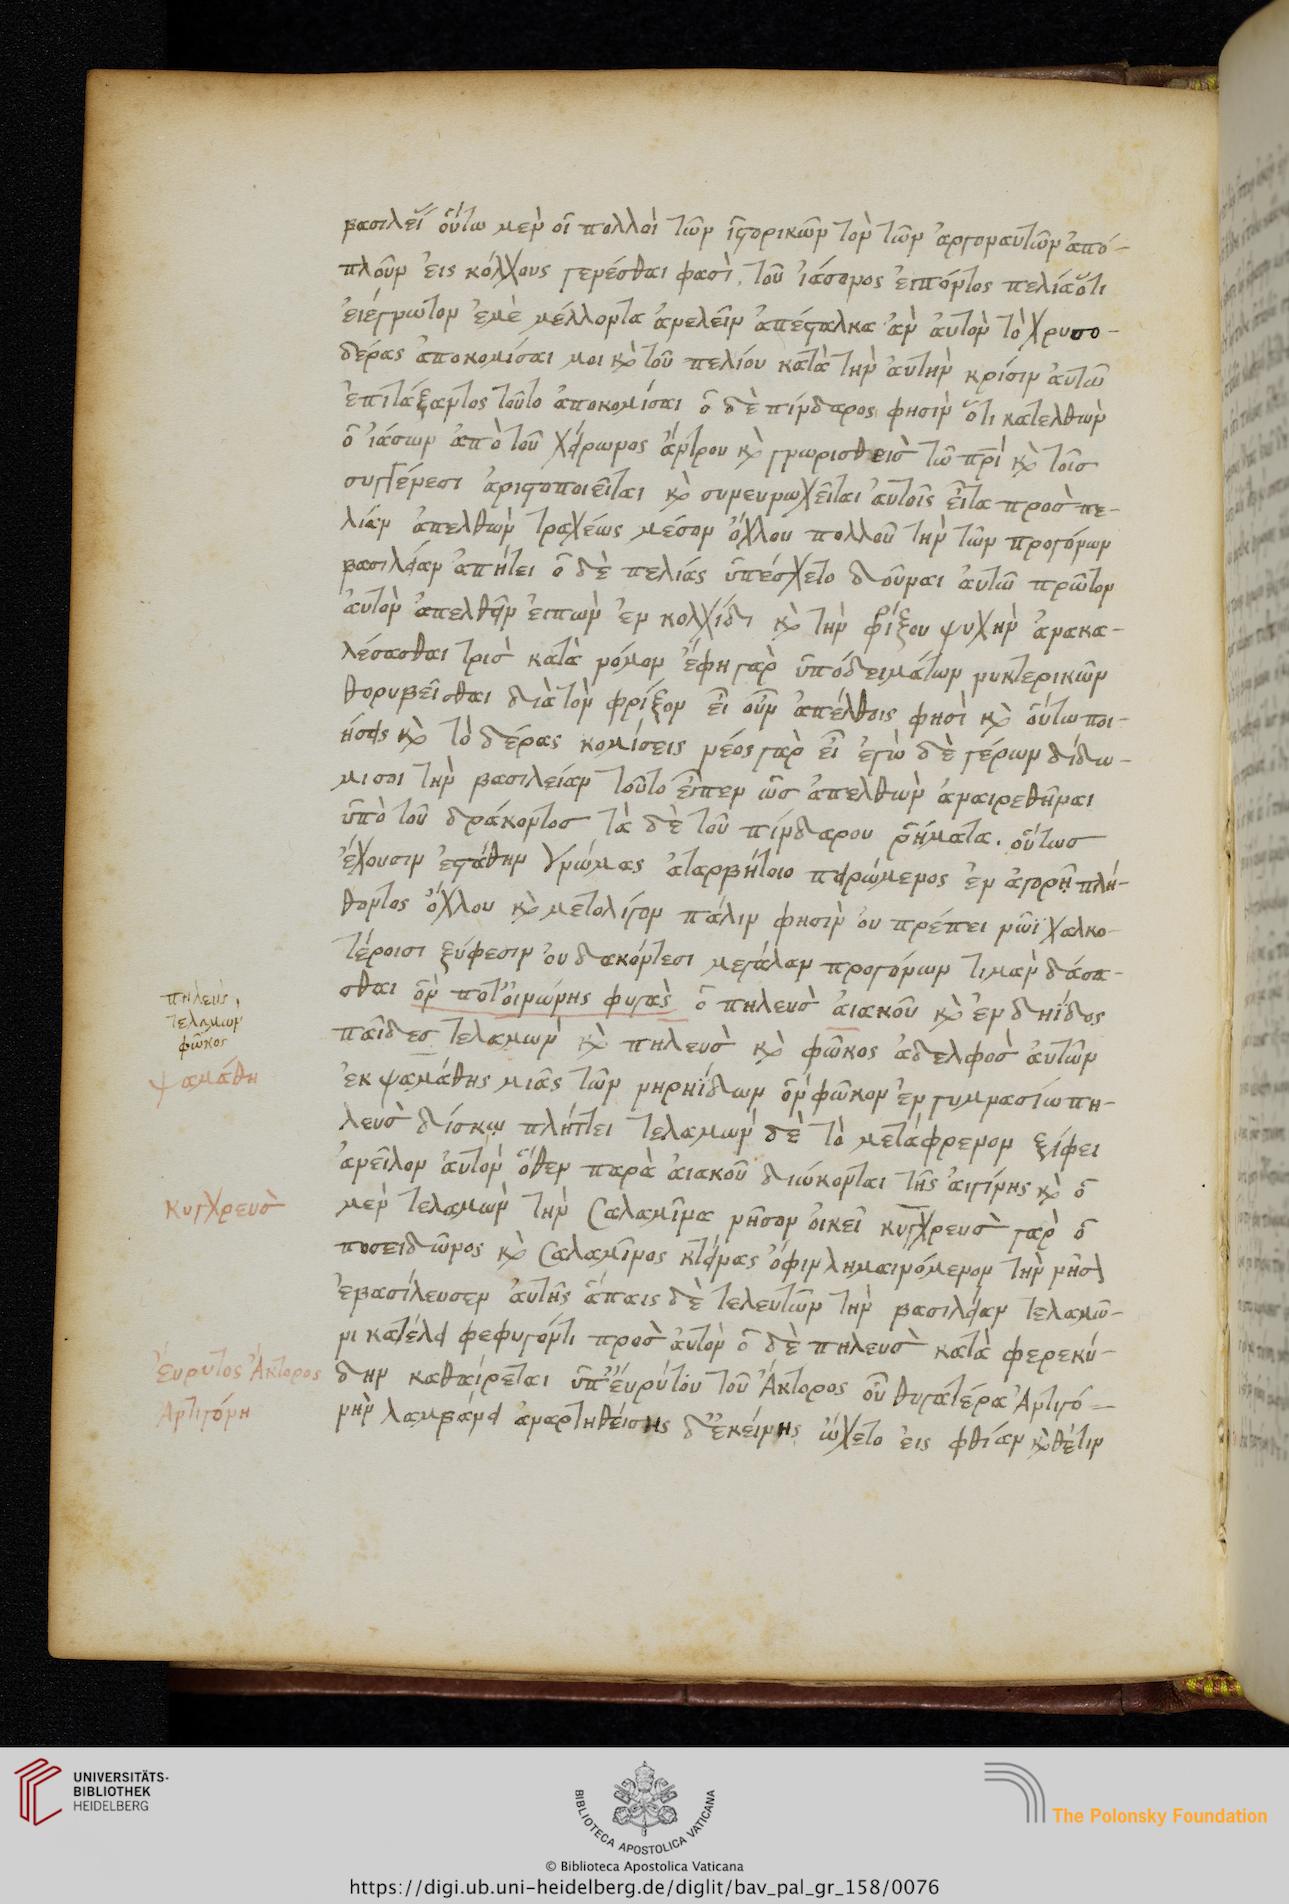 βασιλεῖ οὕτω μεν οἱ πολλοὶ τῶν ἱστορικῶν τὸν τῶν ἀργοναυτῶν ἀπό-
πλουν εἰς κόλχους γενέσθαι φασὶ. τοῦ ἰάσονος εἰπόντος πελία ὅτι
εἰ ἔγνωτον ἐμὲ μέλλοντα ἀνελεῖν ἀπέσταλκα ἀν αὐτὸν τὸ χρυσο-
δέρας ἀποκομίσαι μοι κὶ τοῦ πελίου κατὰ τὴν αὐτὴν κρίσιν αὐτῶ
ἐπιτάξαντος τοῦτο ἀποκομίσαι ὁ δὲ πίνδαρος φησὶν ὅτι κατελθὼν
ὁ ἰάσων ἀπὸ τοῦ χείρωνος ἄντρου κὶ γνωρισθεὶς τῶ πρὶ κὶ τοῖς
συγγένεσι ἀριστοποιεῖται κὶ συνευωχεῖται αὐτοῖς εἶτα προσ πε-
λίαν ἀπελθὼν τραχέως μέσον ὄχλου πολλοῦ τὴν τῶν προγόνων
βασιλείαν ἀπῄτει ὁ δὲ πελίας ὑπέσχετο δοῦναι αὐτῶ πρῶτον
αὐτὸν ἀπελθεῖν εἰπὼν ἐν κολχίδι κὶ τὴν φρίξου ψυχὴν ἀνακα-
λέσασθαι τρισ κατὰ νόμον ἔφη γὰρ ὑπὸ δειμάτων νυκτερικῶν
θορυβεῖσθαι διὰ τὸν φρίξον εἰ οὖν ἀπέλθοις φησὶ κὶ οὕτω ποι-
ήσεις κὶ τὸ δέρας κομίσεις νέος γὰρ εἶ ἐγὼ δὲ γέρων δίδω-
μι σοι τὴν βασιλείαν τοῦτο εἶπεν ὡς ἀπελθὼν ἀναιρεθῆναι
ὑπὸ τοῦ δράκοντος τὰ δὲ τοῦ πίνδαρου ῥήματα. οὕτως
ἔχουσιν ἐστάθην γνώμας ἀταρβήτοιο πειρώμενος ἐν ἀγορῆ πλή-
θοντος ὄχλου κὶ μετολίγον πάλιν φησὶν οὐ πρέπει νῶϊ χαλκο-
τέροισι ξύφεσιν οὐδ ἀκόντεσι μεγάλαν προγόνων τιμὰν δάσα-
σθαι ὅν ποτ' οἰνώνης φυγὰς ὁ πηλευσ αἰακοῦ κὶ ἐνδηΐδος
παῖδες τελαμὼν κὶ πηλευσ κὶ φῶκος ἀδελφοσ αὐτῶν
ἐκ ψαμάθης μιᾶς τῶν νηρηΐδων ὅν φῶκον ἐν γυμνασίω πη-
λευσ δίσκω πλήττει τελαμὼν δὲ τὸ μετάφρενον ξίφει
ἀνεῖλον αὐτὸν ὅθεν παρὰ αἰακοῦ διώκονται τῆς αἰγίνης κὶ ὁ
μεν τελαμὼν τὴν Σαλαμῖνα νῆσον οἰκεῖ κυγχρευσ γὰρ ὁ
ποσειδῶνος κὶ Σαλαμῖνος κτείνας ὄφιν λημαινόμενον τὴν νῆσ
ἐβασίλευσεν αὐτῆς ἄπαις δὲ τελευτῶν τὴν βασιλείαν τελαμῶ-
νι κατέλει φεφυγόντι προσ αὐτὸν ὁ δὲ πηλευσ κατὰ φερεκύ-
δην καθαίρεται ὑπ' εὐρύτου τοῦ Ἄκτορος οὗ θυγατέρα Ἀντιγό-
νην λαμβάνει ἀναρτηθείσης δ' ἐκείνης ὤχετο εἰς φθίαν κὶ θέτιν
πηλεύς
τελαμὼν
φῶκος
ψαμάθη
κυγχρευσ
Ἔυρυτος Ἄκτορος
Ἀντιγόνη
UNIVERSITÄTS-
BIBLIOTHEK
HEIDELBERG
BIBLIOTECA APOSTOLICA VATICANA
The Polonsky Foundation
© Biblioteca Apostolica Vaticana
https://digi.ub.uni-heidelberg.de/diglit/bav_pal_gr_158/0076